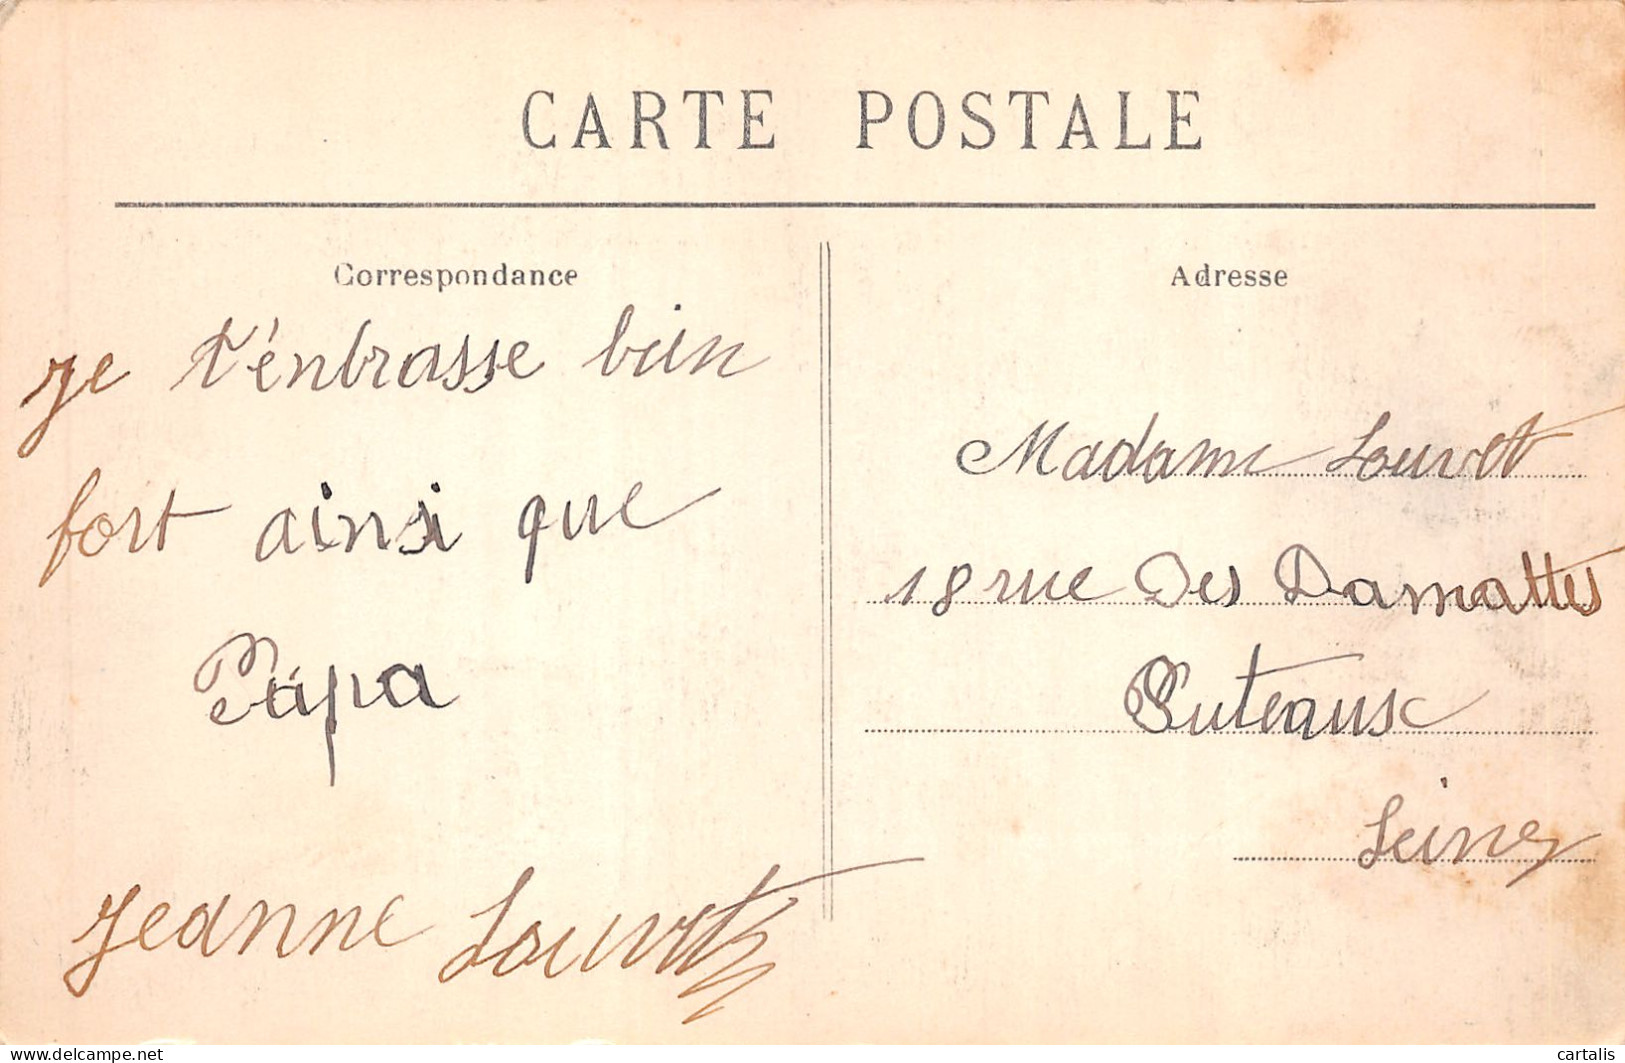 CARTE POSTALE
Correspondance
je t'énbrasse bien
fort ainsi que
Papa
Jeanne Louvet
Adresse
Madame Louvet
18 rue Des Damattes
Puteaux
Seine
www.delcampe.net
cartalis